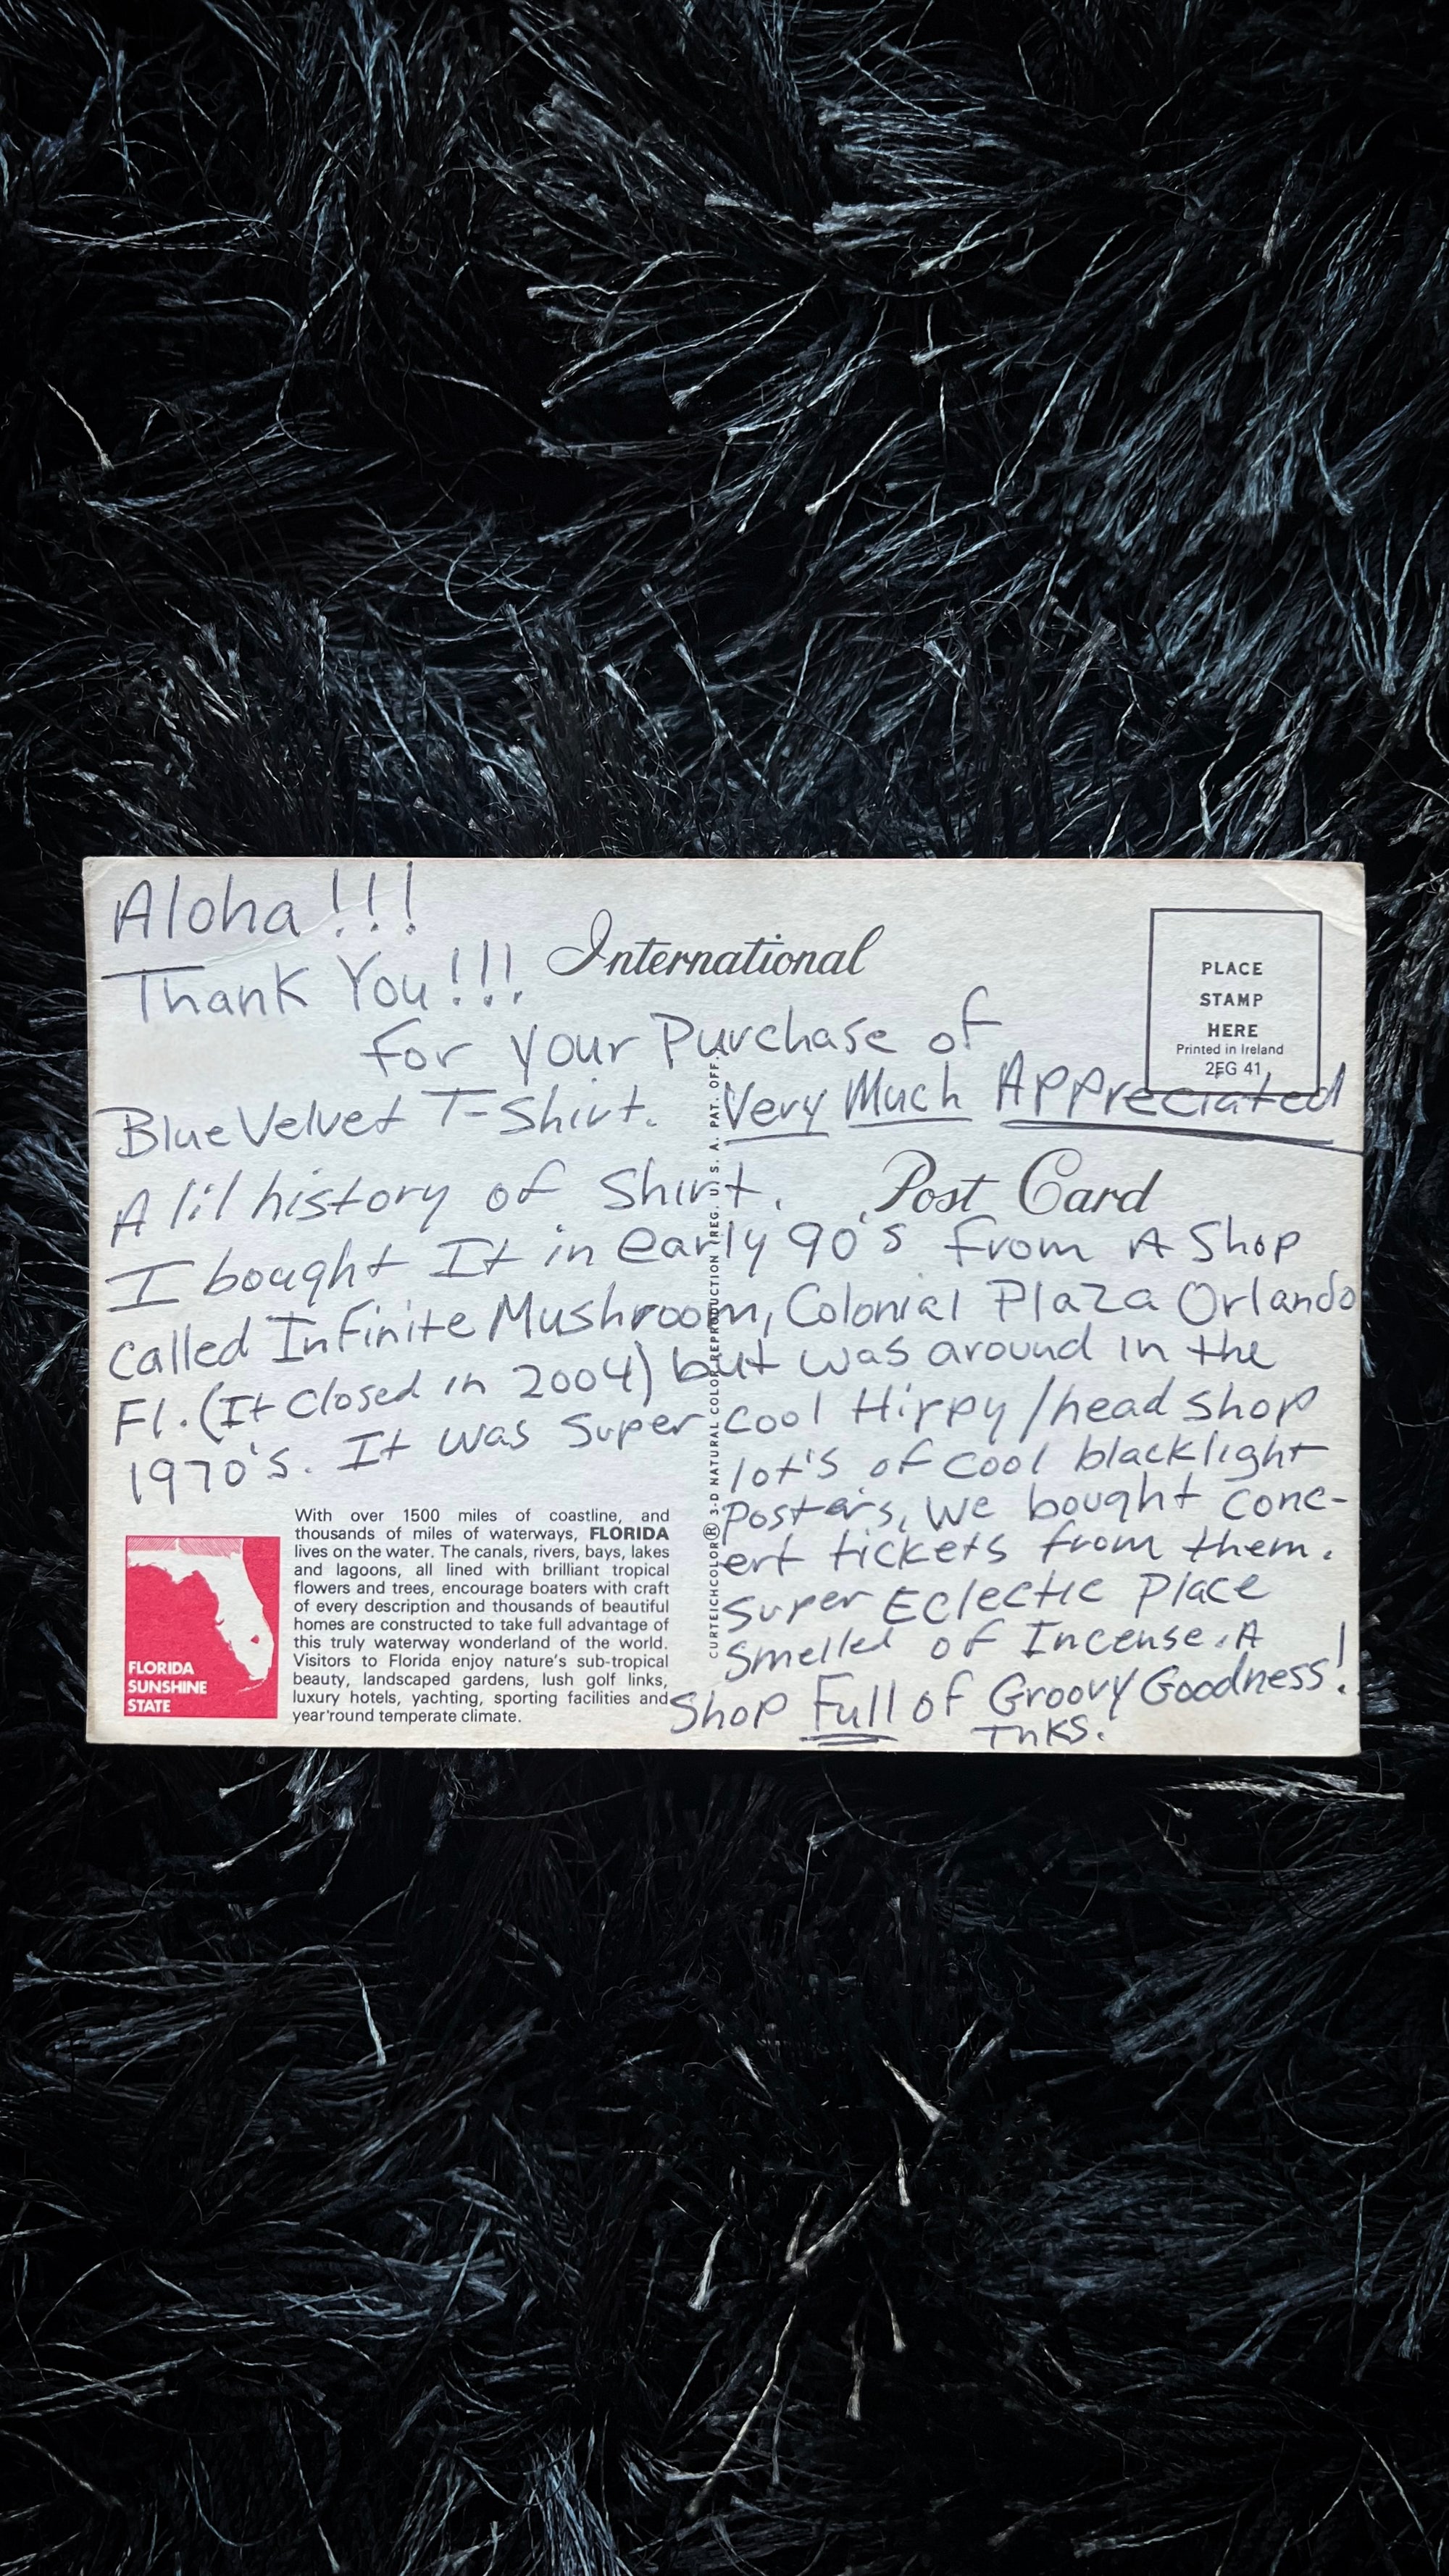 Aloha!!!
International
Thank You!!!
for your Purchase of
Blue Velvet T-Shirt. Very Much Appreciated
A lil history of Shirt.
I bought It in early 90's from A Shop
called Infinite Mushroom, Colonial Plaza Orlando
Fl. (It closed in 2004) but was around in the
1970's. It was Super cool Hippy/head shop
lot's of cool blacklight
Posters, we bought conc-
ert tickets from them.
Super Eclectic Place
Smelled of Incense. A
Shop Full of Groovy Goodness!
Thks.
PLACE
STAMP
HERE
Printed in Ireland
2EG 41
Post Card
CURTEICHCOLOR® 3-D NATURAL COLOR REPRODUCTION (REG. U. S. A. PAT. OFF.)
With over 1500 miles of coastline, and
thousands of miles of waterways, FLORIDA
lives on the water. The canals, rivers, bays, lakes
and lagoons, all lined with brilliant tropical
flowers and trees, encourage boaters with craft
of every description and thousands of beautiful
homes are constructed to take full advantage of
this truly waterway wonderland of the world.
Visitors to Florida enjoy nature's sub-tropical
beauty, landscaped gardens, lush golf links,
luxury hotels, yachting, sporting facilities and
year'round temperate climate.
FLORIDA
SUNSHINE
STATE